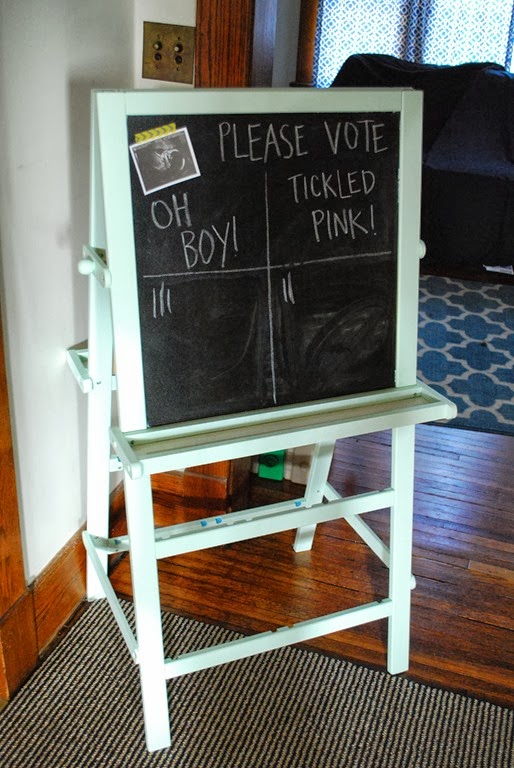 PLEASE VOTE
OH
BOY!
TICKLED
PINK!